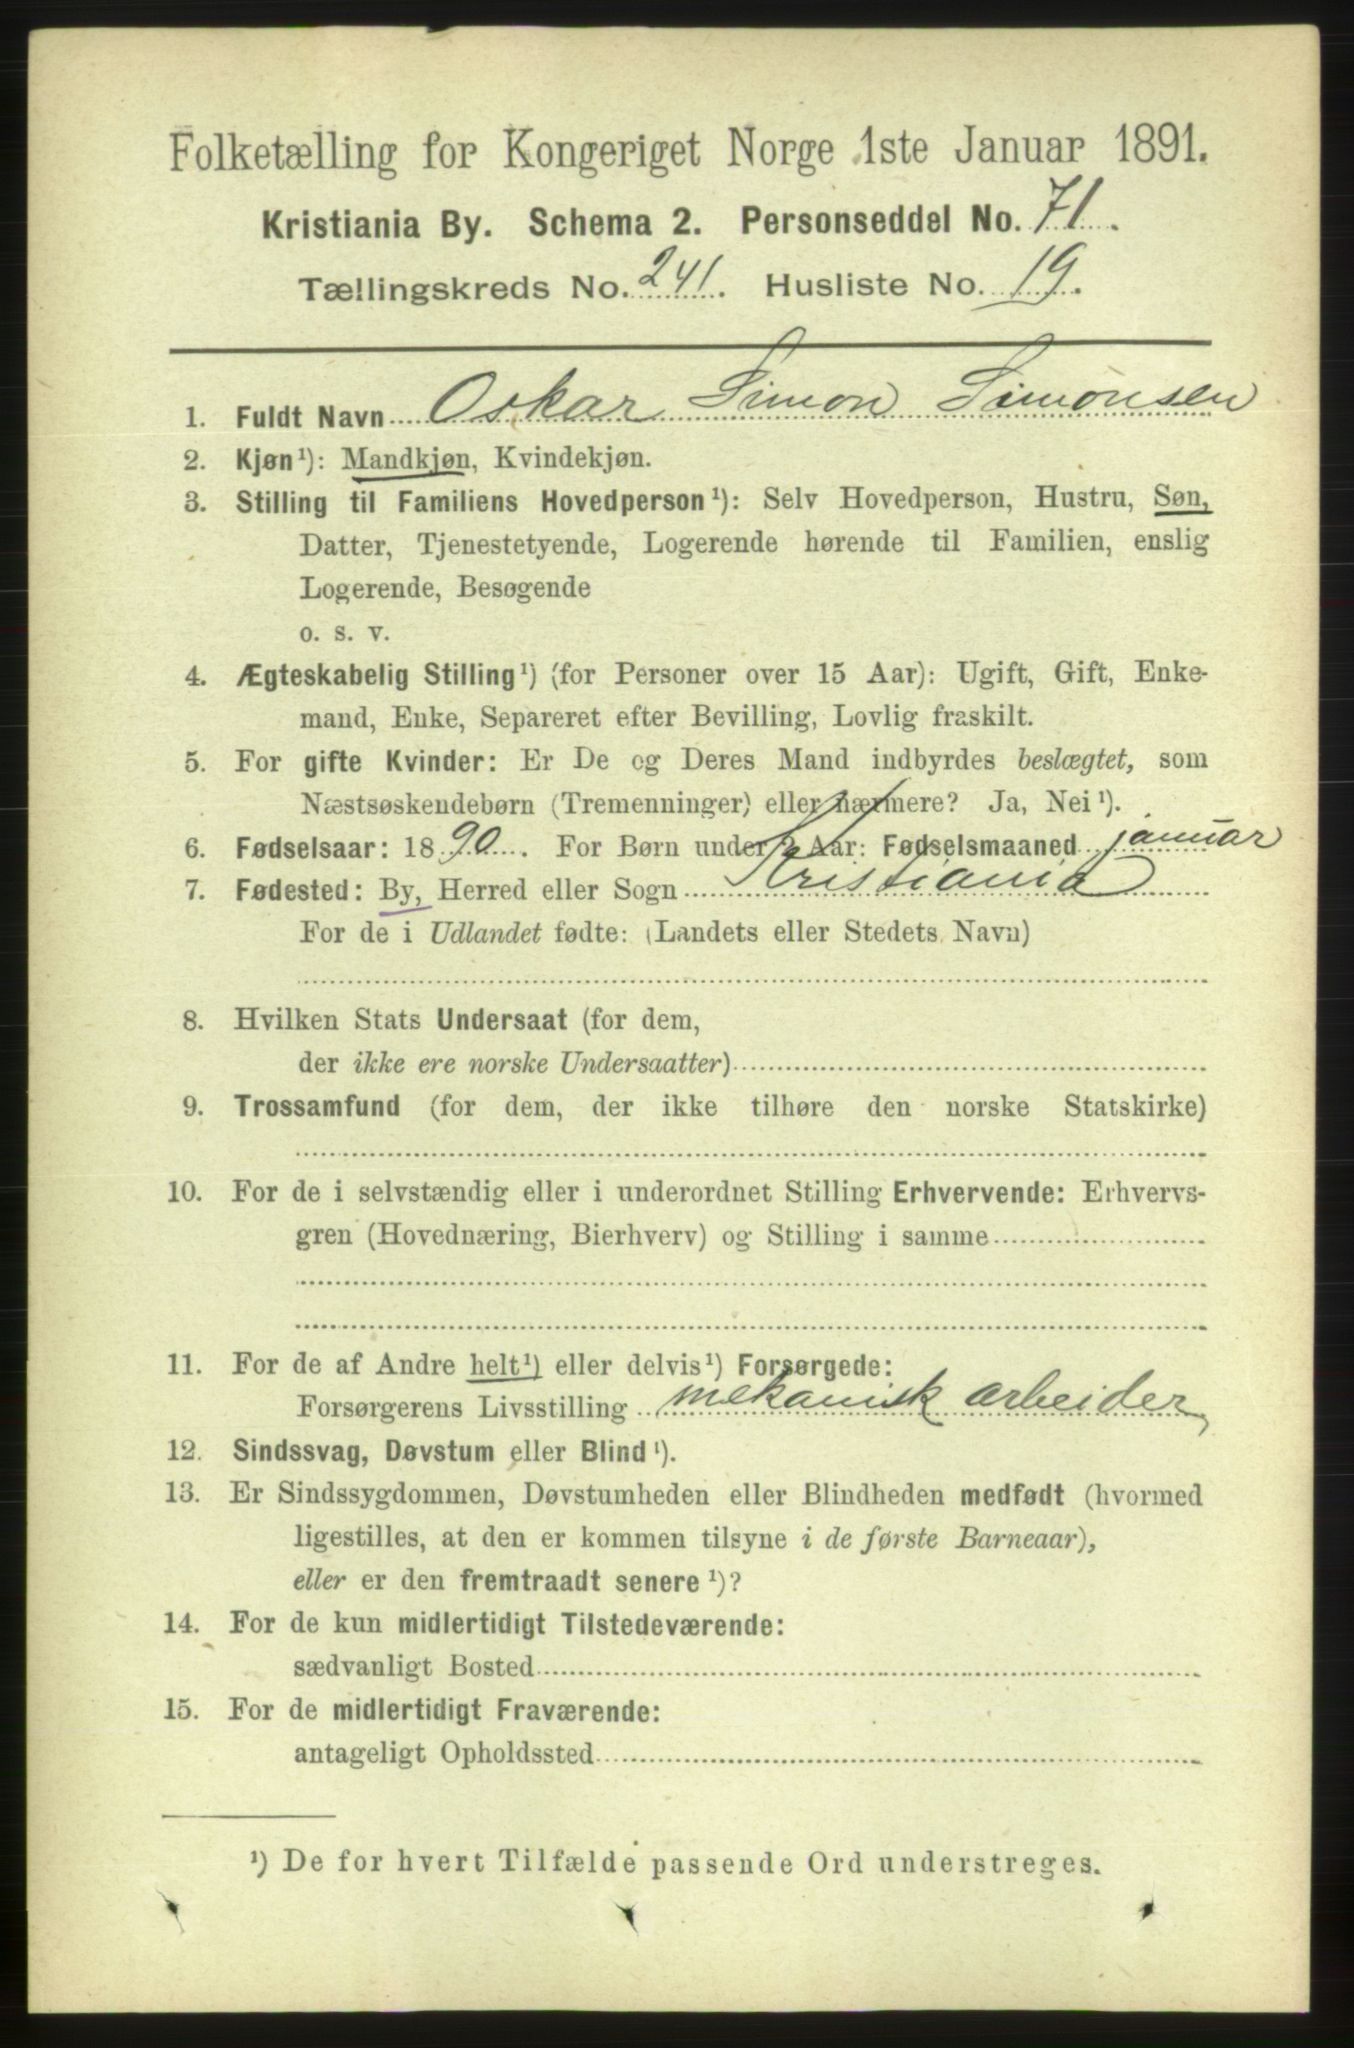 Folketælling for Kongeriget Norge 1ste Januar 1891.
Kristiania By. Schema 2. Personseddel No. 71.
Tællingskreds No. 241. Husliste No. 19.
1. Fuldt Navn Oskar Simon Simonsen
2. Kjøn¹): Mandkjøn, Kvindekjøn.
3. Stilling til Familiens Hovedperson¹): Selv Hovedperson, Hustru, Søn,
Datter, Tjenestetyende, Logerende hørende til Familien, enslig
Logerende, Besøgende
o. s. v.
4. Ægteskabelig Stilling¹) (for Personer over 15 Aar): Ugift, Gift, Enke-
mand, Enke, Separeret efter Bevilling, Lovlig fraskilt.
5. For gifte Kvinder: Er De og Deres Mand indbyrdes beslægtet, som
Næstsøskendebørn (Tremenninger) eller nærmere? Ja, Nei¹).
6. Fødselsaar: 1890. For Børn under 2 Aar: Fødselsmaaned januar
7. Fødested: By, Herred eller Sogn Kristiania
For de i Udlandet fødte: (Landets eller Stedets Navn)
8. Hvilken Stats Undersaat (for dem,
der ikke ere norske Undersaatter)
9. Trossamfund (for dem, der ikke tilhøre den norske Statskirke)
10. For de i selvstændig eller i underordnet Stilling Erhvervende: Erhvervs-
gren (Hovednæring, Bierhverv) og Stilling i samme
11. For de af Andre helt¹) eller delvis¹) Forsørgede:
Forsørgerens Livsstilling mekanisk arbeider
12. Sindssvag, Døvstum eller Blind¹).
13. Er Sindssygdommen, Døvstumheden eller Blindheden medfødt (hvormed
ligestilles, at den er kommen tilsyne i de første Barneaar),
eller er den fremtraadt senere¹)?
14. For de kun midlertidigt Tilstedeværende:
sædvanligt Bosted
15. For de midlertidigt Fraværende:
antageligt Opholdssted
¹) De for hvert Tilfælde passende Ord understreges.